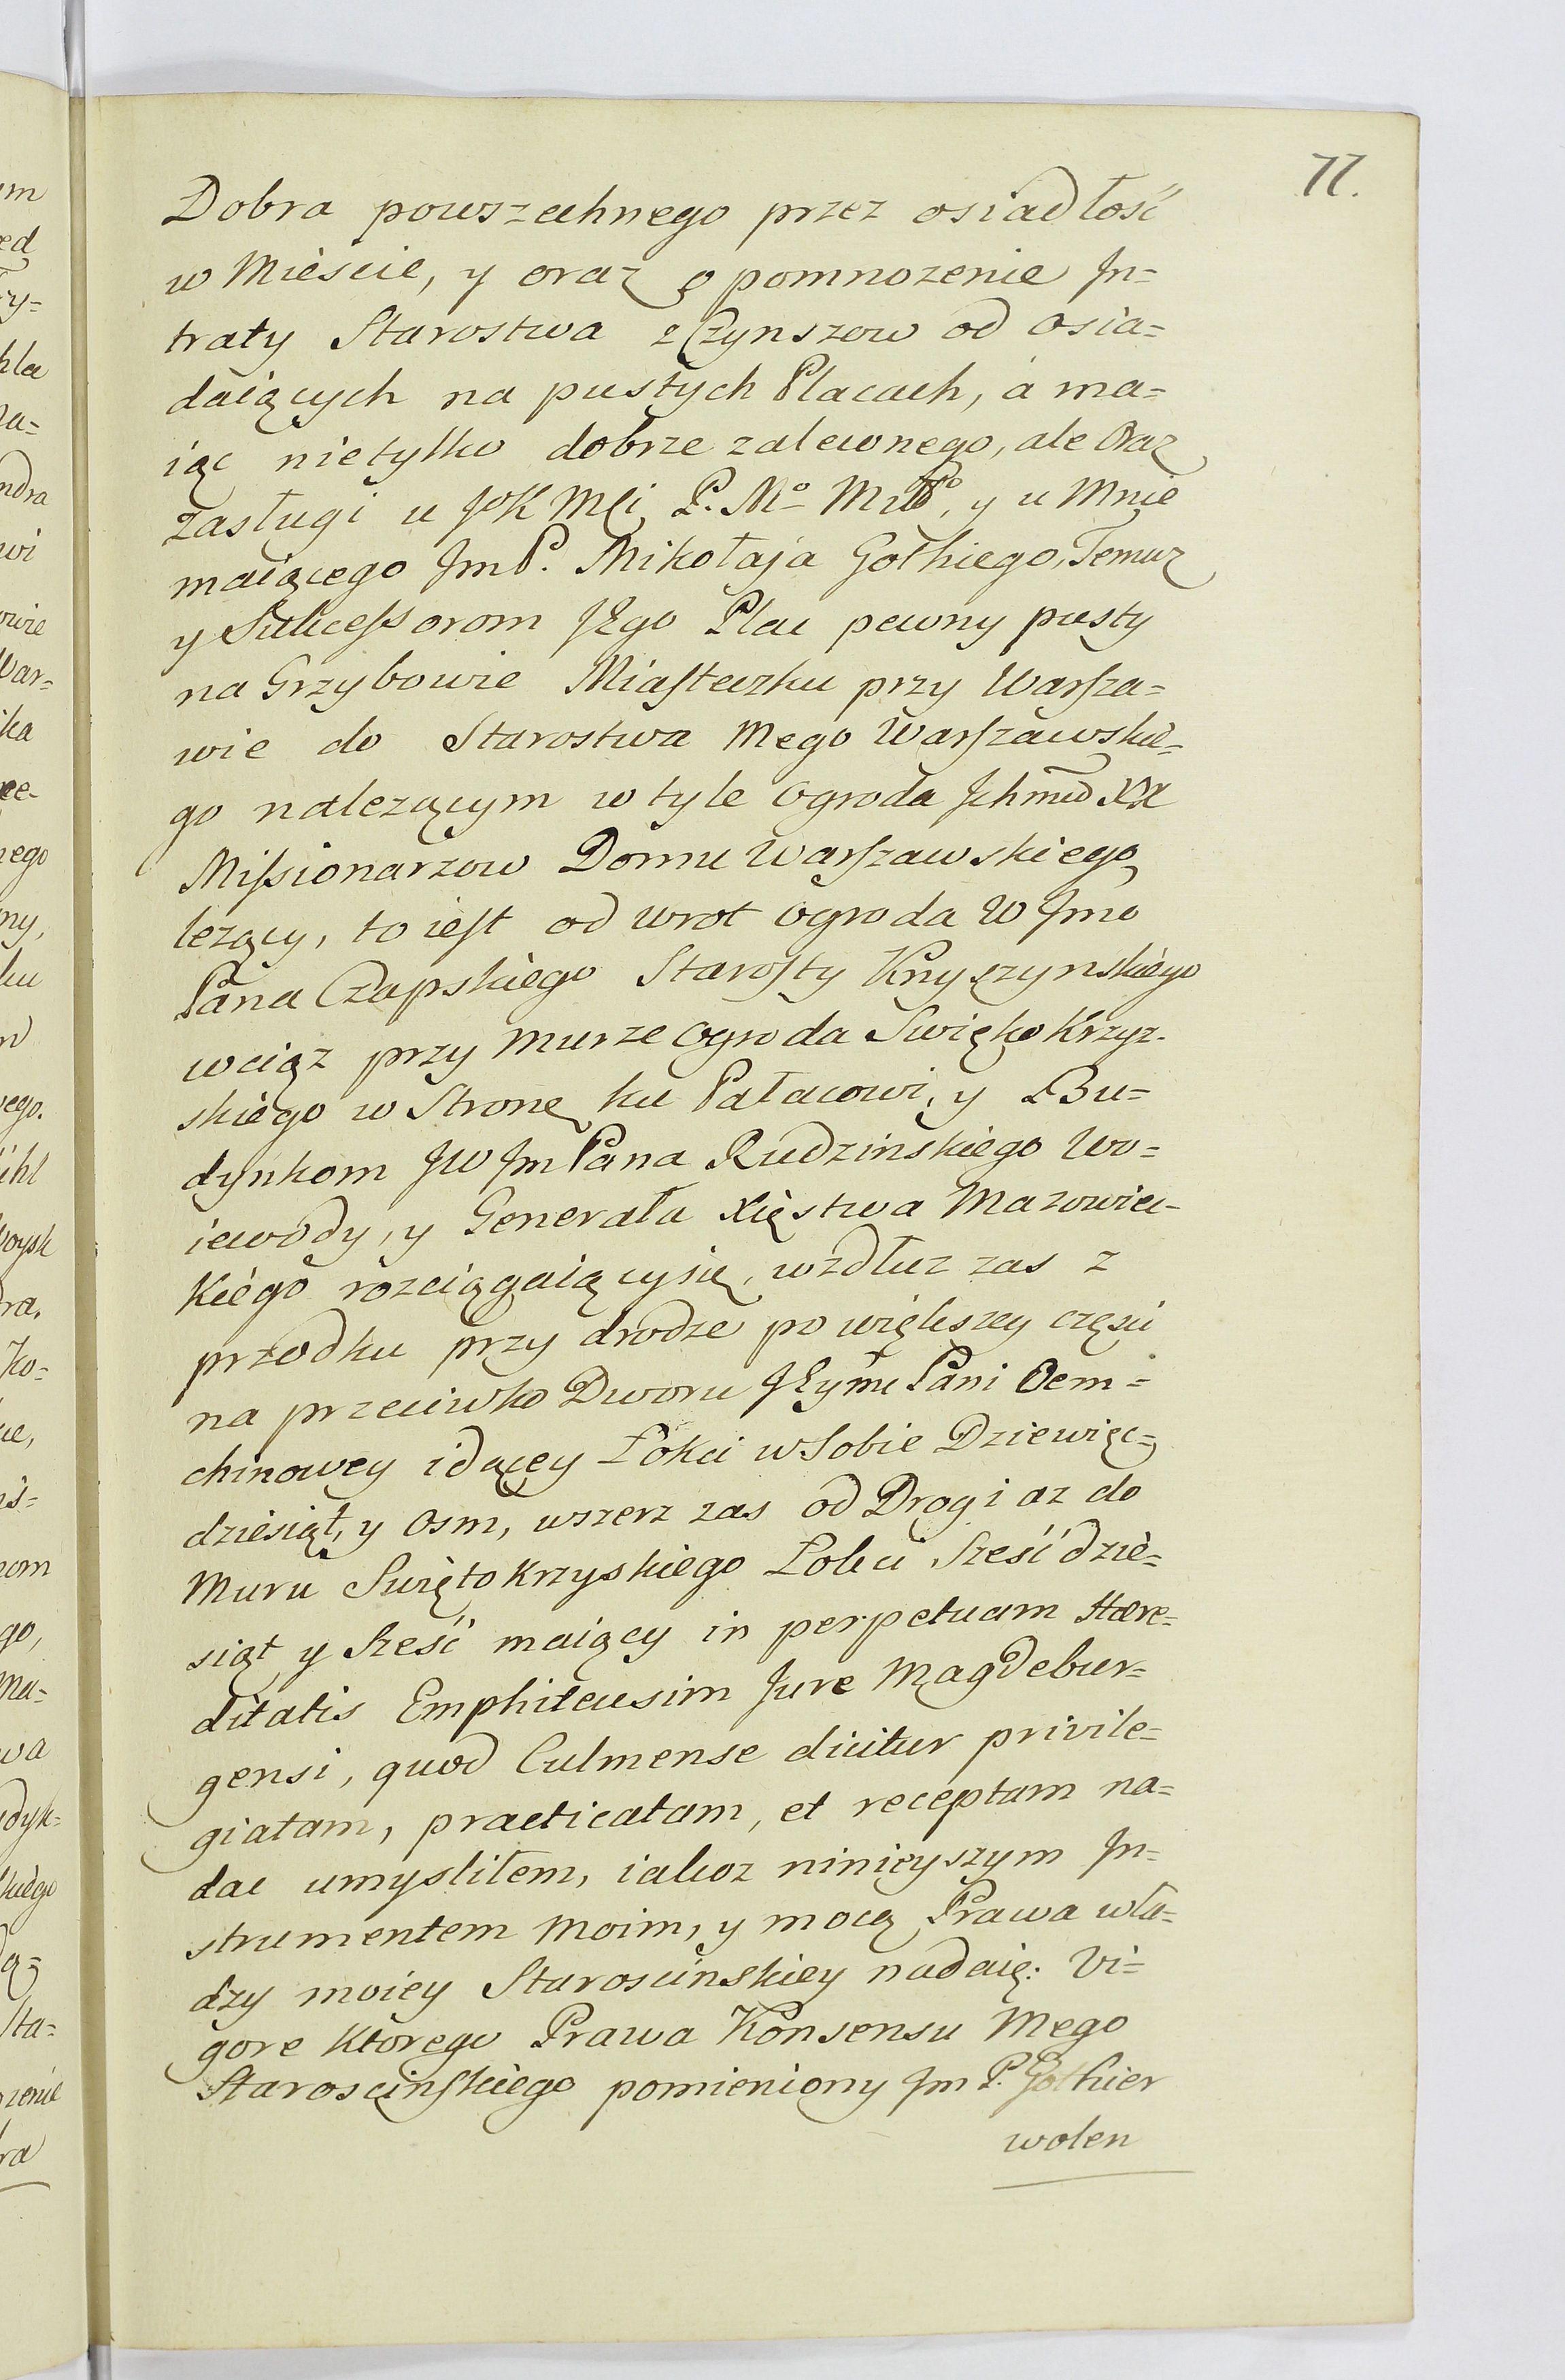 77.
Dobra powszechnego przez osiadłość
w Mieście, y oraz o pomnozenie In=
traty Starostwa z Czynszow od osia=
daiących na pustych Placach, á ma=
iąc nietylko dobrze zalecnego, ale oraz
zasługi u JoK Mći P. Mo Miło, y u Mnie
maiącego JmP. Mikołaja Gołhiego, Temuz
y Sukceſsorom JEgo Plac pewny pusty
na Grzybowie Miaſteczku przy Warſza=
wie do Starostwa Mego Warſzawskie=
go nalezącym w tyle Ogroda Jchmċ XX
Miſsionarzow Domu Warſzawskiego
lezący, to ieſt od wrot Ogroda W Jmo
Pana Czapskiego Staroſty Knyszynskiego
wciąz przy Murze Ogroda Swięto Krzyz-
skiego w Stronę ku Pałacowi, y Bu=
dynkom JW Jm Pana Rudzinskiego Wo=
iewody, y Generała Xięstwa Mazowiec-
Kiego rozciągaiący się, wzdłuz zas z
przodku przy drodze po większey częsci
na przeciwko Dworu JEymċ Pani Oem=
chinowey idącey Łokci w Sobie Dziewięc=
dziesiąt, y Osm, wszerz zas od Drogi az do
Muru Swięto Krzyskiego Łokci Sześć dzie=
siąt y Sześć maiący in perpetuam Hære=
ditatis Emphiteusim Jure Magdebur=
gensi, quod Culmense dicitur privile=
giatam, practicatam, et receptam na=
dac umysliłem, iakoz ninieyszym In=
strumentem Moim, y mocą Prawa wła=
dzy moiey Staroscinskiey nadaię: Vi=
gore Ktorego Prawa Konsensu Mego
Staroscinſkiego pomieniony Jm P. Gołhier
wolen